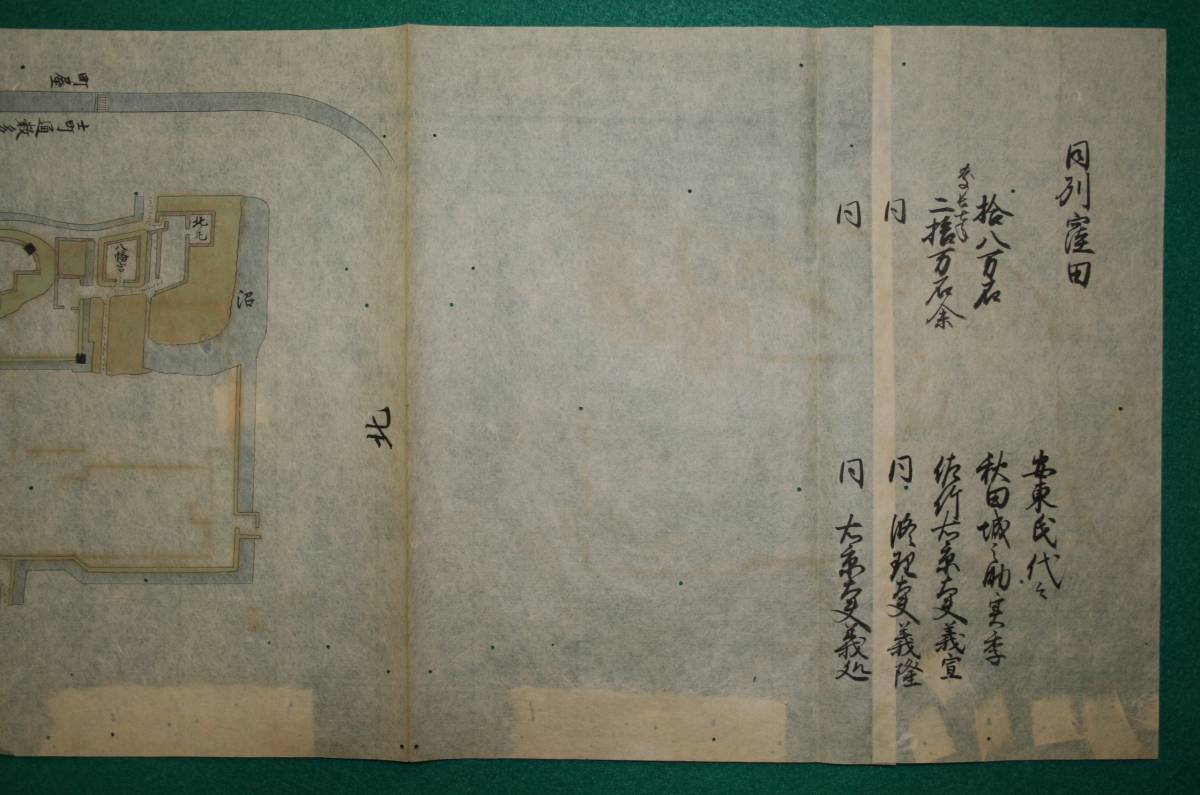 同列窪田
安東氏代々
拾八万石
秋田城之助実季
慶長七年
二拾万石余
佐竹右京大夫義宣
同
同 修理大夫義隆
同
同 右京大夫義処
北
沼
北丸
八幡宮
町屋
士町通数多